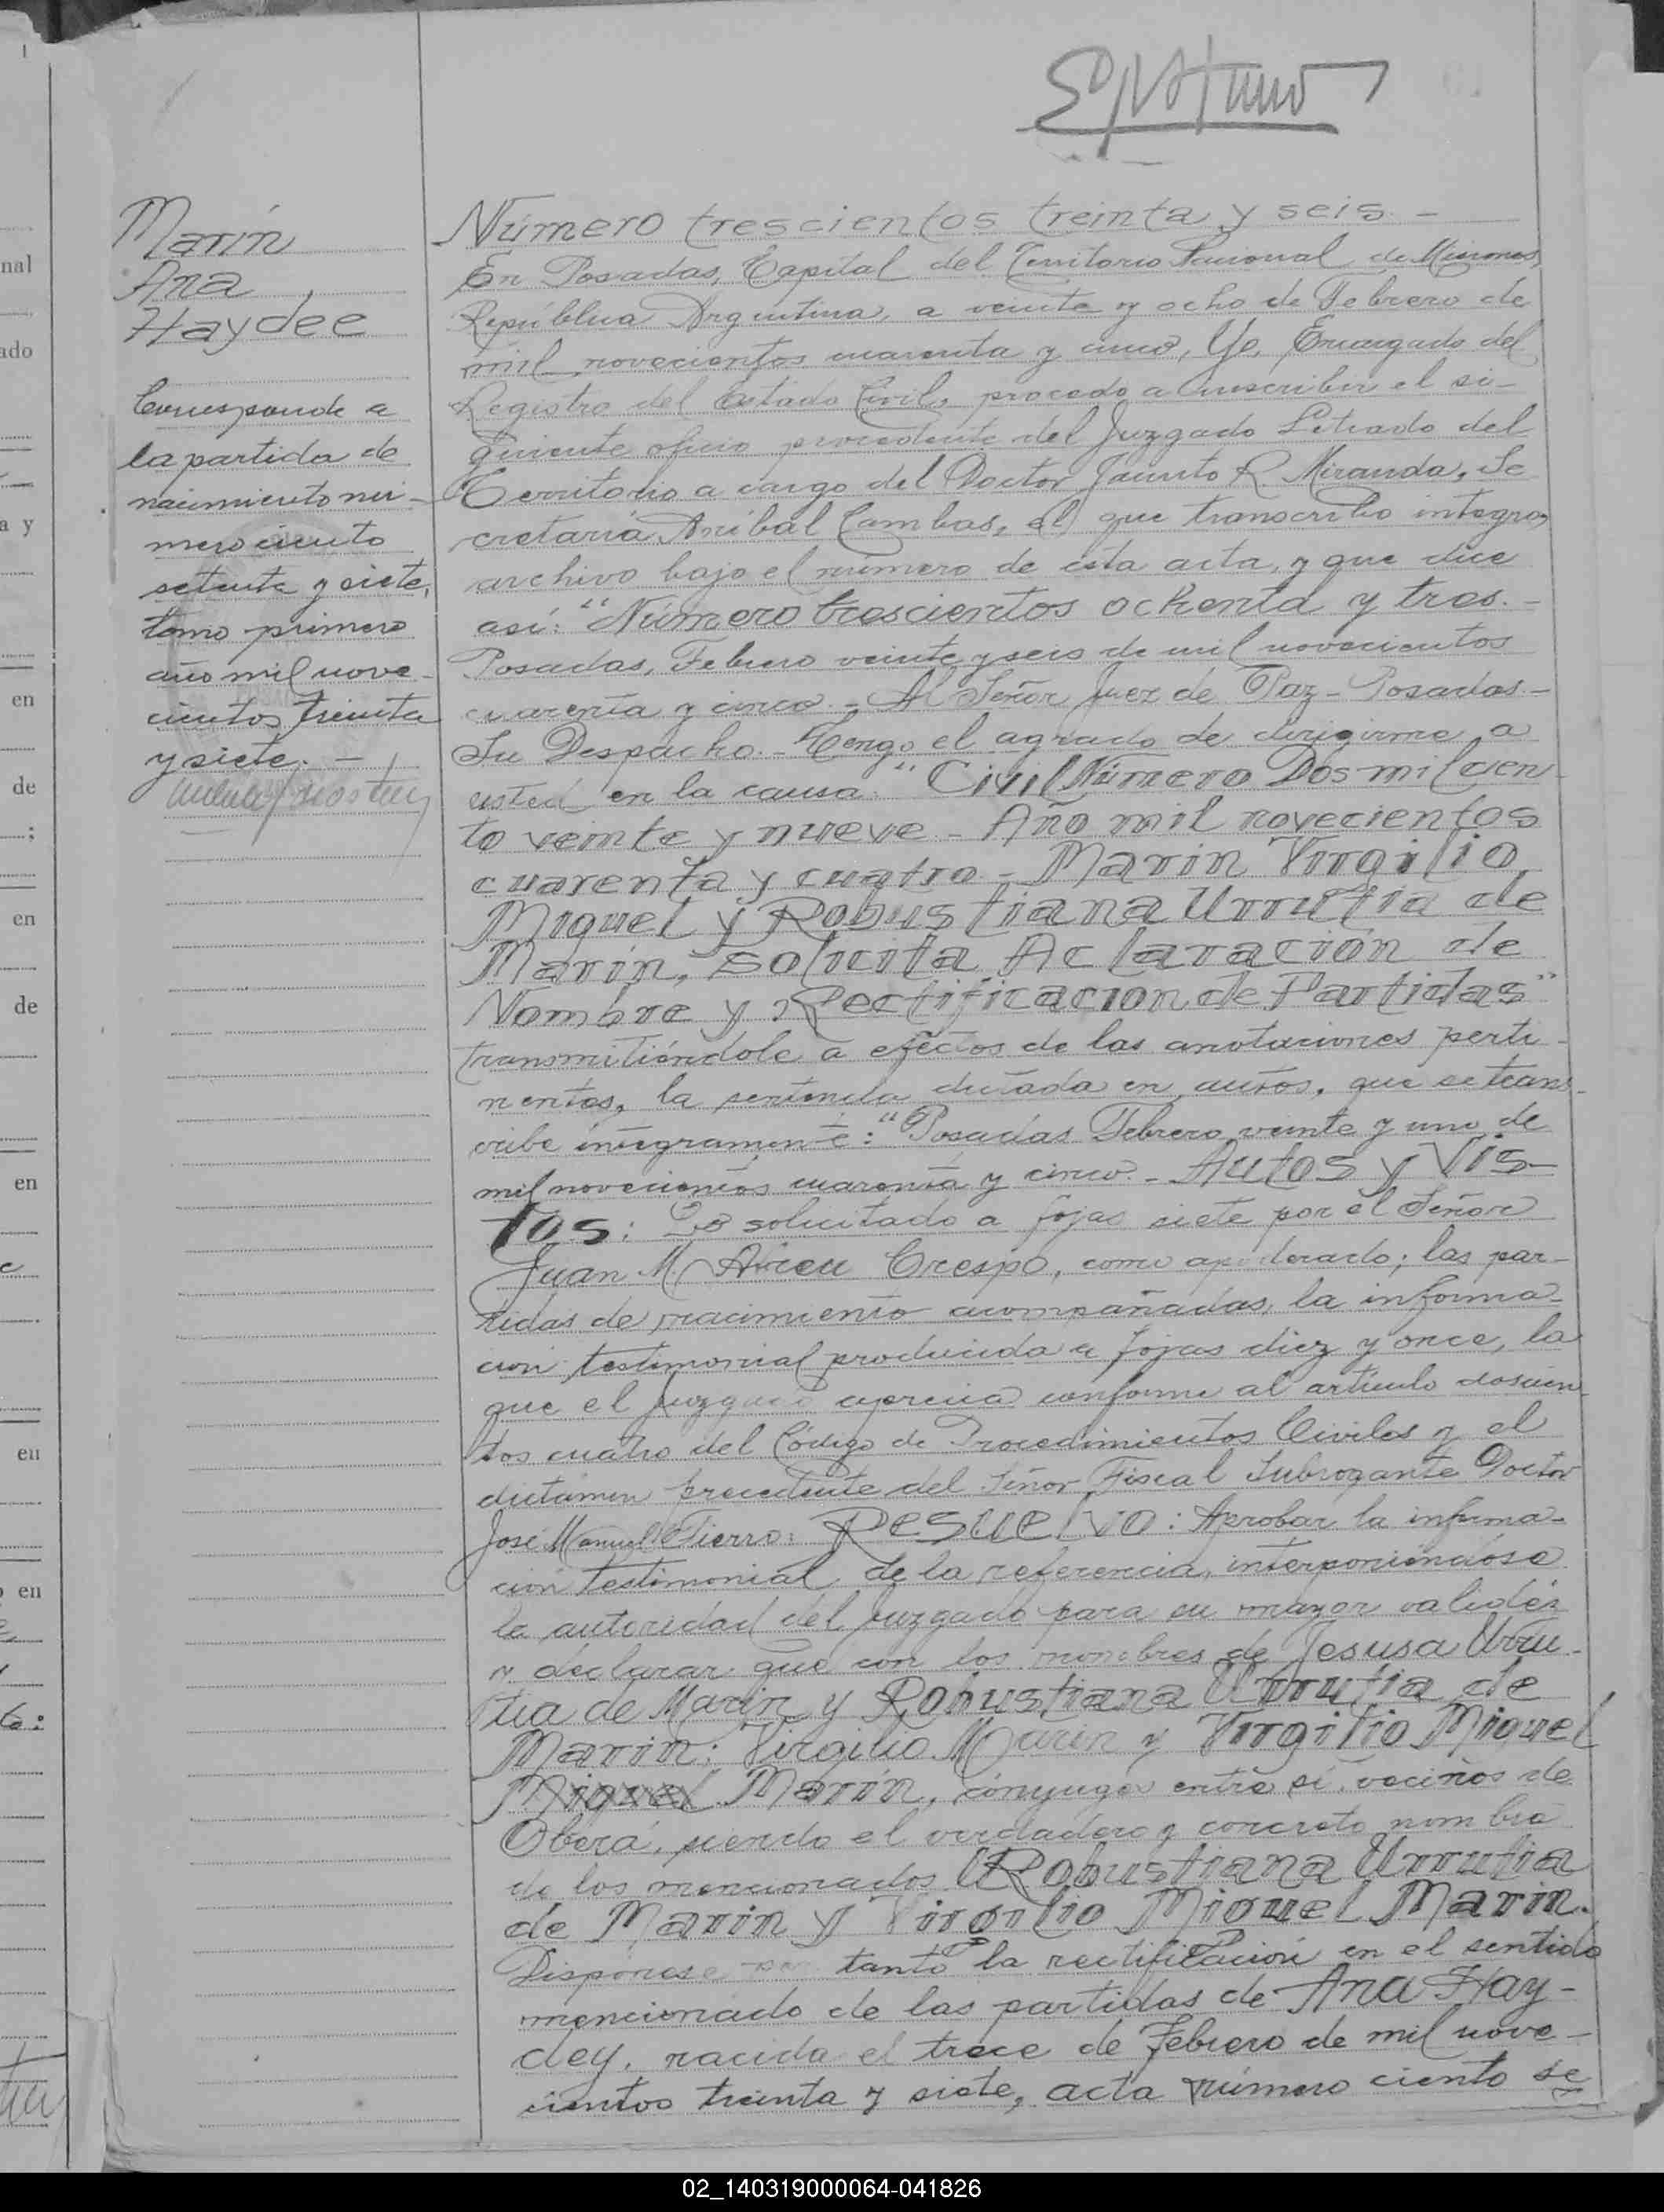 Marin
Ana
Haydee
Corresponde a
la partida de
nacimiento nú-
mero ciento
setenta y siete,
tomo primero
año mil nove-
cientos treinta
y siete. —
Número trescientos treinta y seis. —
En Posadas, Capital del Territorio Nacional de Misiones,
República Argentina, a veinte y ocho de Febrero de
mil novecientos cuarenta y cinco, Yo, Encargado del
Registro del Estado Civil, procedo a inscribir el si-
guiente oficio procedente del Juzgado Letrado del
Territorio a cargo del Doctor Jacinto R. Miranda, Se
cretaría Aníbal Cambas, el que transcribo integro,
archivo bajo el número de esta acta, y que dice
así: "Número trescientos ochenta y tres. -
Posadas, Febrero veinte y seis de mil novecientos
cuarenta y cinco. - Al Señor Juez de Paz - Posadas. -
Su Despacho. - Tengo el agrado de dirigirme a
usted en la causa: "Civil Número Dos mil cien
to veinte y nueve - Año mil novecientos
cuarenta y cuatro - Marin Virgilio
Miguel y Robustiana Urrutia de
Marin, solicita Aclaración de
Nombre y Rectificacion de Partidas"
transmitiéndole a efectos de las anotaciones perti-
nentes, la sentencia dictada en autos, que se trans-
cribe integramente: "Posadas Febrero veinte y uno de
mil novecientos cuarenta y cinco. - Autos y Vis-
tos: Lo solicitado a fojas siete por el Señor
Juan M. Abreu Crespo, como apoderado; las par-
tidas de nacimiento acompañadas, la informa-
ción testimonial producida a fojas diez y once, la
que el Juzgado aprecia conforme al artículo doscien
tos cuatro del Código de Procedimientos Civiles y el
dictámen precedente del Señor Fiscal Subrogante Doctor
José Manuel Fierro: Resuelvo: Aprobar la informa-
ción testimonial de la referencia, interponiéndose
la autoridad del Juzgado para su mayor validéz
y declarar que con los nombres de Jesusa Urru-
tia de Marin y Robustiana Urrutia de
Marin: Virgilio Marin y Virgilio Miguel
Miguel Marín, cónyuges entre sí, vecinos de
Oberá, siendo el verdadero y concreto nombre
de los mencionados Robustiana Urrutia
de Marin y Virgilio Miguel Marin.
Disponese por tanto la rectificación en el sentido
mencionado de las partidas de Ana Hay-
dey, nacida el trece de Febrero de mil nove-
cientos treinta y siete, acta número ciento se
nal
ado
a y
en
de
en
de
en
en
en
02_140319000064-041826